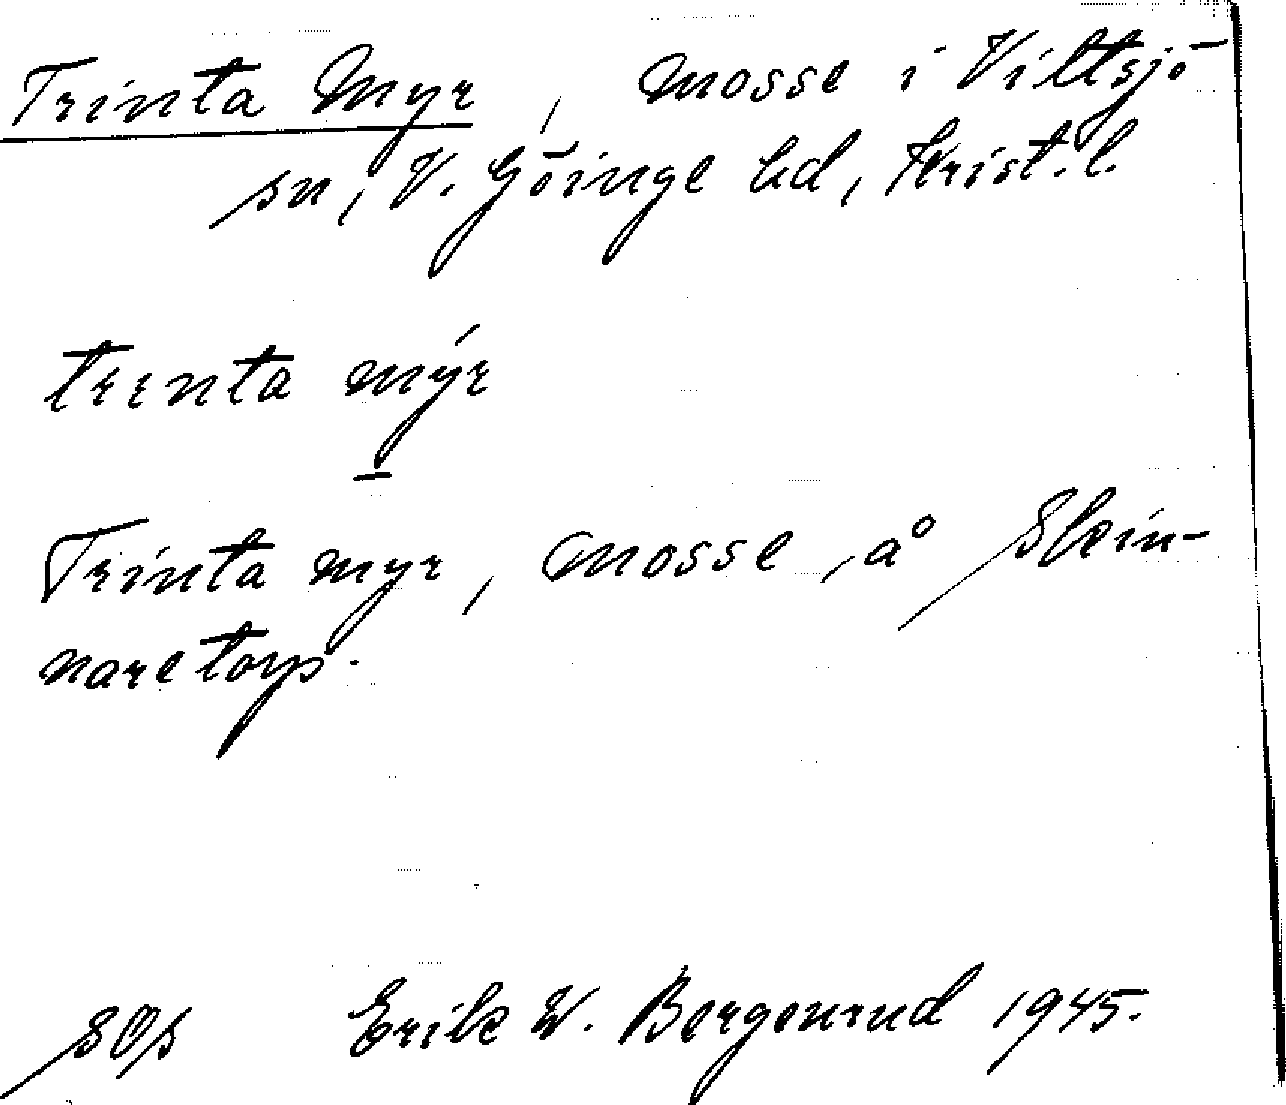 Trinta Myr, mosse i Vittsjö
sn, V. Göinge hd, Krist. l.
trenta mýr
Trinta myr, mosse, å Skin-
naretorp.
SOs Erik W. Bergenrud 1945.